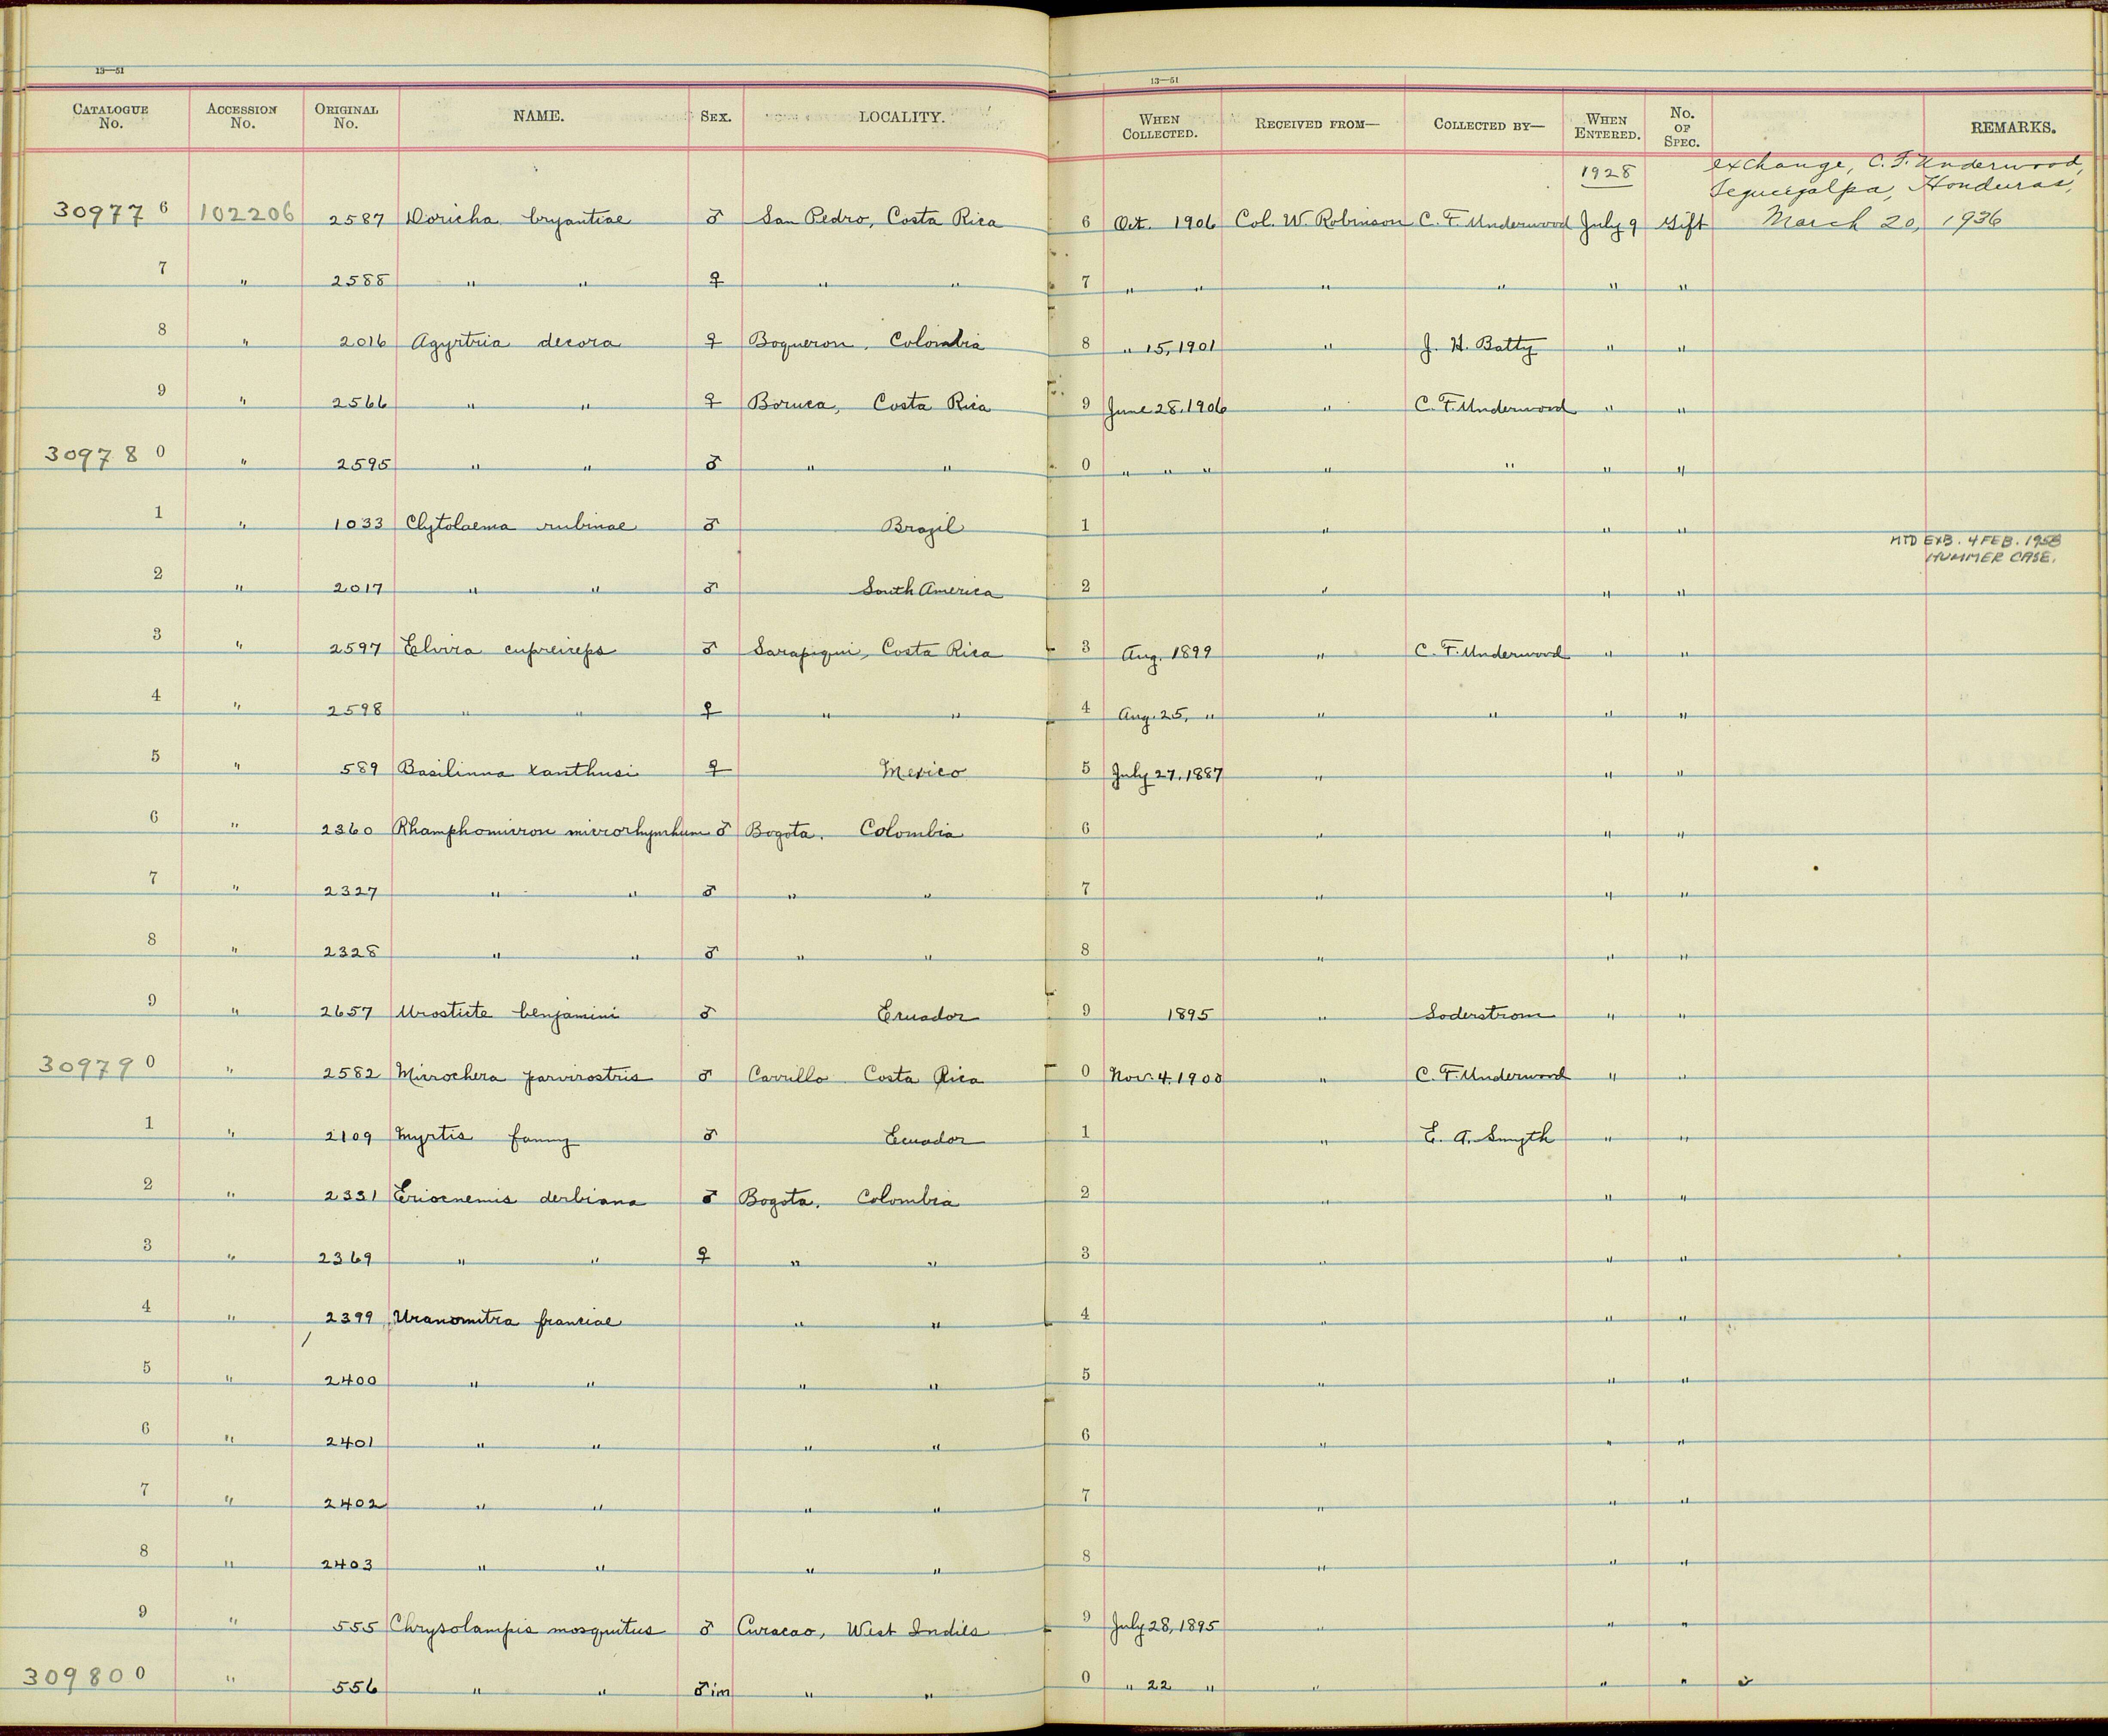 13—51 13—51
CATALOGUE No. ACCESSION No. ORIGINAL No. NAME. SEX. LOCALITY. WHEN COLLECTED. RECEIVED FROM— COLLECTED BY— WHEN ENTERED. No. OF SPEC. REMARKS.
1928 exchange, C. F. Underwood,
Tegucigalpa, Honduras,
30977 6 102206 2587 Doricha bryantiae ♂ San Pedro, Costa Rica 6 Oct. 1906 Col. W. Robinson C. F. Underwood July 9 Gift March 20, 1936
7 " 2588 " " ♀ " " 7 " " " " " "
8 " 2016 Agyrtria decora ♀ Boqueron, Colombia 8 " 15, 1901 " J. H. Batty " "
9 " 2566 " " ♀ Boruca, Costa Rica 9 June 28, 1906 " C. F. Underwood " "
30978 0 " 2595 " " ♂ " " 0 " " " " " " "
1 " 1033 Clytolaema rubinae ♂ Brazil 1 " " "
MTD EXB. 4 FEB. 1958
HUMMER CASE.
2 " 2017 " " ♂ South America 2 " " "
3 " 2597 Elvira cupreiceps ♂ Sarapiqui, Costa Rica 3 Aug. 1899 " C. F. Underwood " "
4 " 2598 " " ♀ " " 4 Aug. 25, " " " " "
5 " 589 Basilinna xanthusi ♀ Mexico 5 July 27, 1887 " " "
6 " 2360 Rhamphomicron microrhynchum ♂ Bogota. Colombia 6 " " "
7 " 2327 " " ♂ " " 7 " " "
8 " 2328 " " ♂ " " 8 " " "
9 " 2657 Urosticte benjamini ♂ Ecuador 9 1895 " Soderstrom " "
30979 0 " 2582 Microchera parvirostris ♂ Carrillo Costa Rica 0 Nov. 4. 1900 " C. F. Underwood " "
1 " 2109 Myrtis fanny ♂ Ecuador 1 " E. A. Smyth " "
2 " 2331 Eriocnemis derbiana ♂ Bogota. Colombia 2 " " "
3 " 2369 " " ♀ " " 3 " " "
4 " 2399 Uranomitra franciae " " 4 " " "
5 " 2400 " " " " 5 " " "
6 " 2401 " " " " 6 " " "
7 " 2402 " " " " 7 " " "
8 " 2403 " " " " 8 " " "
9 " 555 Chrysolampis mosquitus ♂ Curacao, West Indies 9 July 28, 1895 " " "
30980 0 " 556 " " ♂ im " " 0 " 22 " " " "